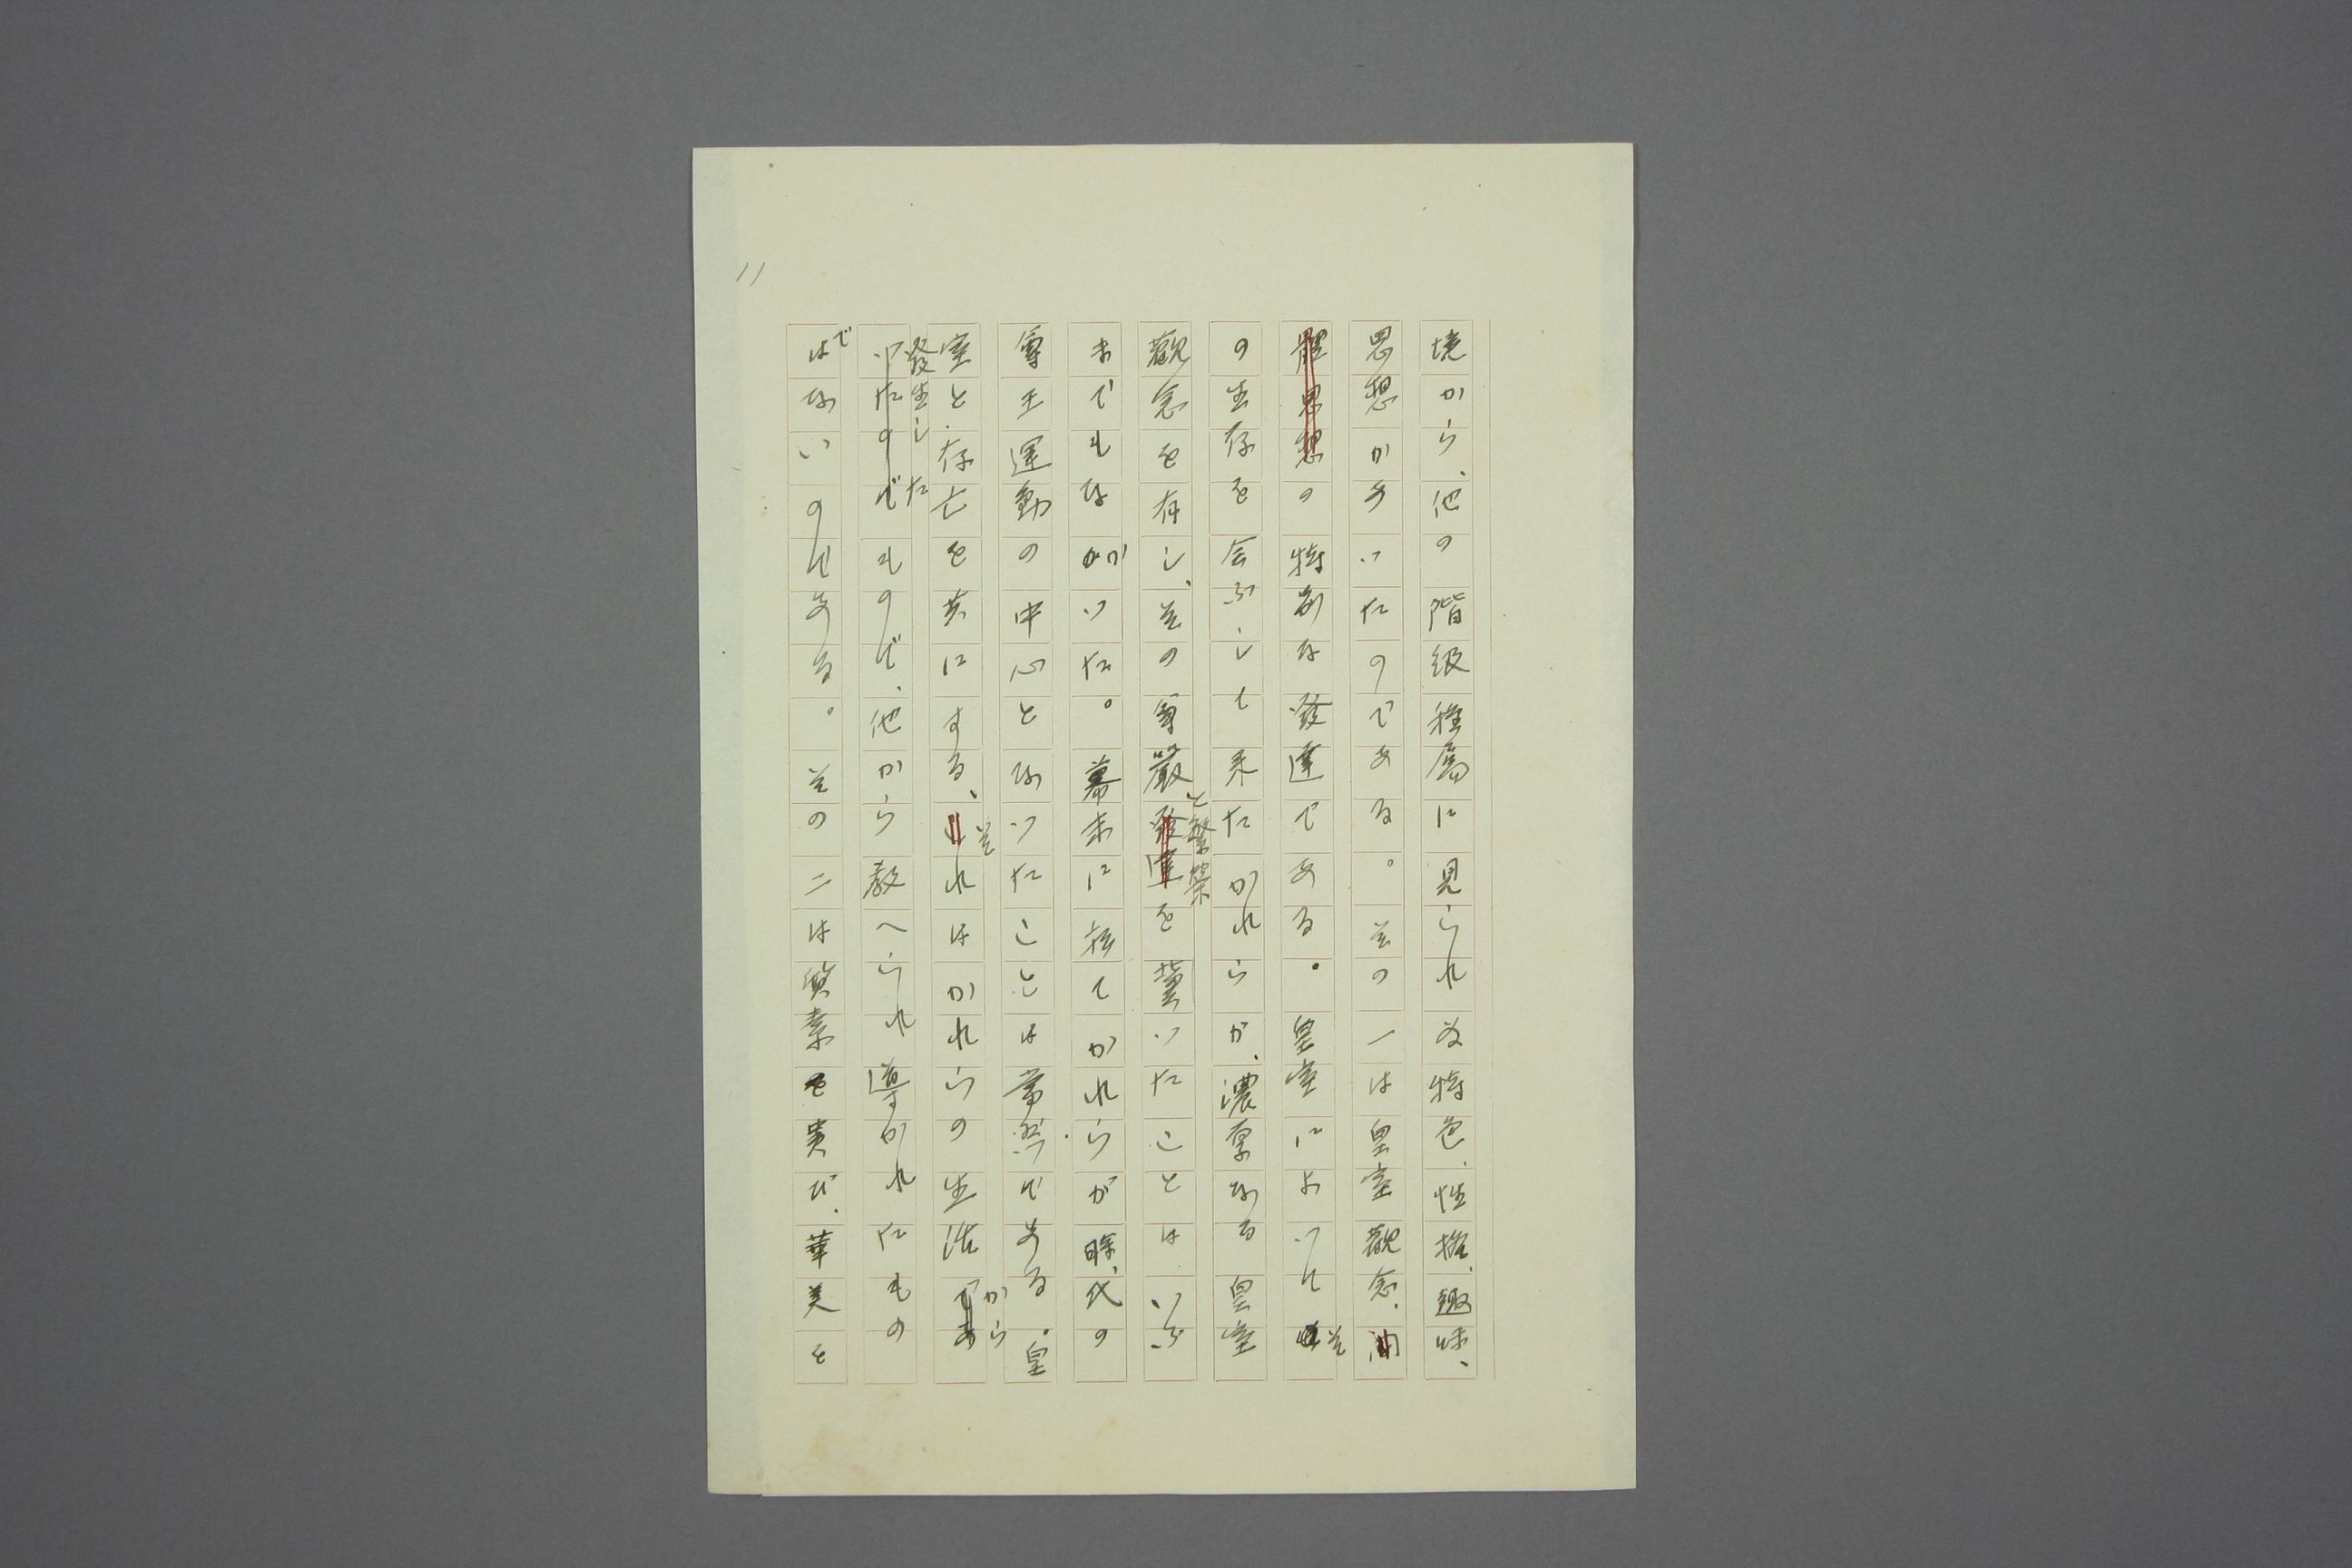 11
境から、他の階級種属に見られぬ特色、性格、趣味、
思想があつたのである。其の一は皇室觀念、
の特別な發達である。皇室によつて其
の生存を全ふして来たかれらが、濃厚なる皇室
觀念を有し、其の尊嚴と繁榮を冀つたことはいふ
までもなかつた。幕末に於てかれらが時代の
尊王運動の中心となつたことは當然である。皇
室と存亡を共にする、其れはかれらの生活から
發生したもので、他から教へられ導かれたもの
ではないのである。其の二は質素を貴び、華美を